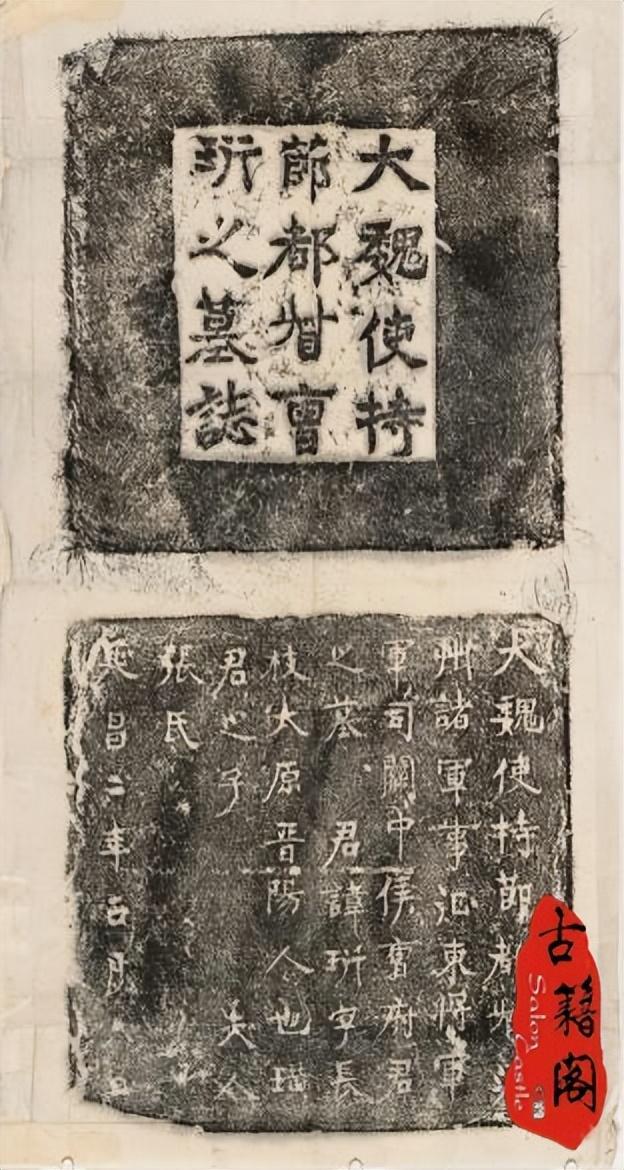 大魏使持
節都督曹
之墓誌
大魏使持節都督
州諸軍事 東將軍
軍司關中侯曹府君
之墓 君諱 字長
枝大原晋陽人也
君之子 夫人
張氏
延昌二年 月
古籍阁
Salon Castle